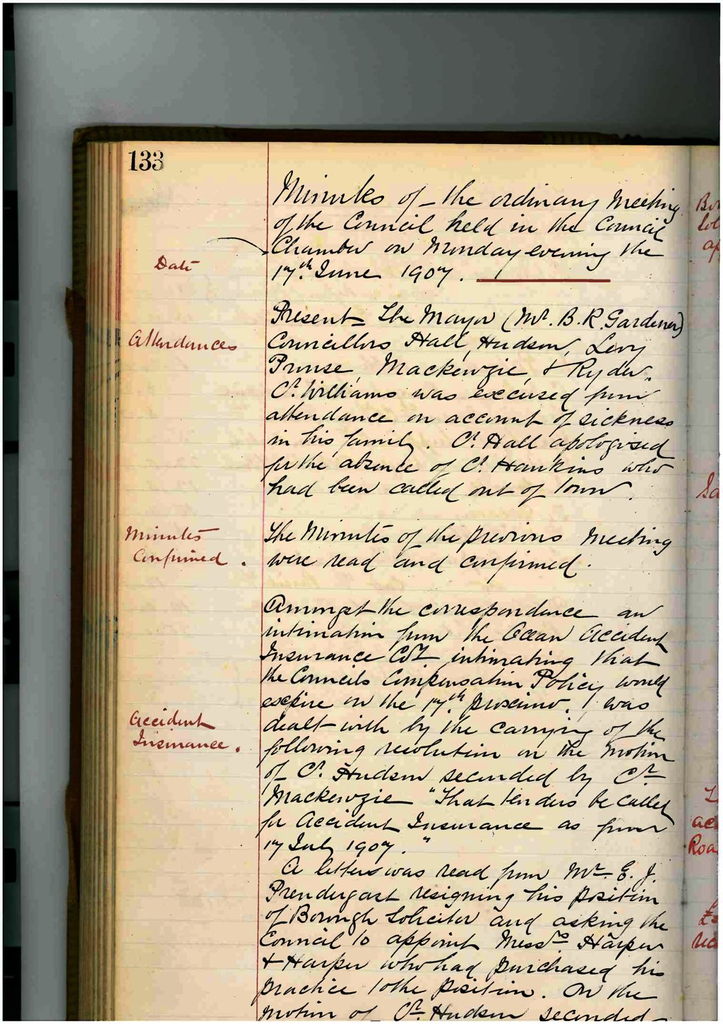 133
Minutes of the ordinary Meeting
of the Council held in the Council
Chamber on Monday evening the
17th June 1907.
Date
Present The Mayor (Mr. B. R. Gardener)
Attendances
Councillors Hall, Hudson, Levy
Prouse, Mackenzie, & Ryder.
Cr. Williams was excused from
attendance on account of sickness
in his family. Cr. Hall apologised
for the absence of Cr. Hawkins who
had been called out of town.
Minutes
Confirmed.
The Minutes of the previous Meeting
were read and confirmed.
Amongst the correspondence an
intimation from the Ocean Accident
Insurance Coy. intimating that
the Councils Compensation Policy would
expire on the 17th proximo, was
Accident
Insurance.
dealt with by the carrying of the
following resolution on the motion
of Cr. Hudson seconded by Cr.
Mackenzie "That tenders be called
for Accident Insurance as from
17 July 1907."
A letter was read from Mr. E. J.
Prendergast resigning his position
of Borough Solicitor and asking the
Council to appoint Messrs Harper
& Harper who had purchased his
practice to the position. On the
motion of Cr. Hudson seconded